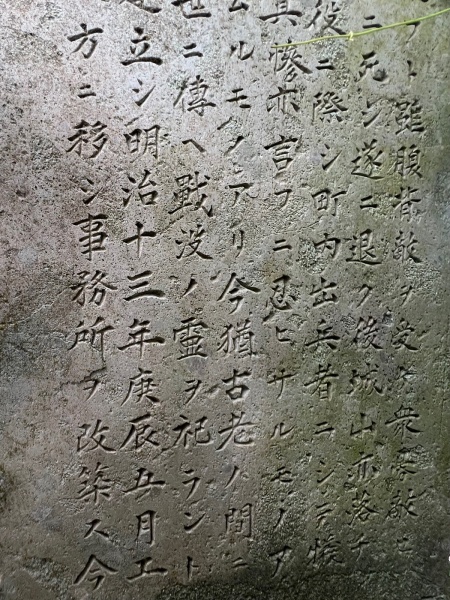 フト雖腹背敵ヲ受ケ衆寡敵セ
ニ死シ遂ニ退ク後城山亦落チ
役ニ際シ町内出兵者ニシテ
其惨亦言フニ忍ヒサルモノア
ムルモノアリ今猶古老ノ間ニ
世ニ傳ヘ戰没ノ靈ヲ祀ラント
建立シ明治十三年庚辰五月工
方ニ移シ事務所ヲ改築ス今